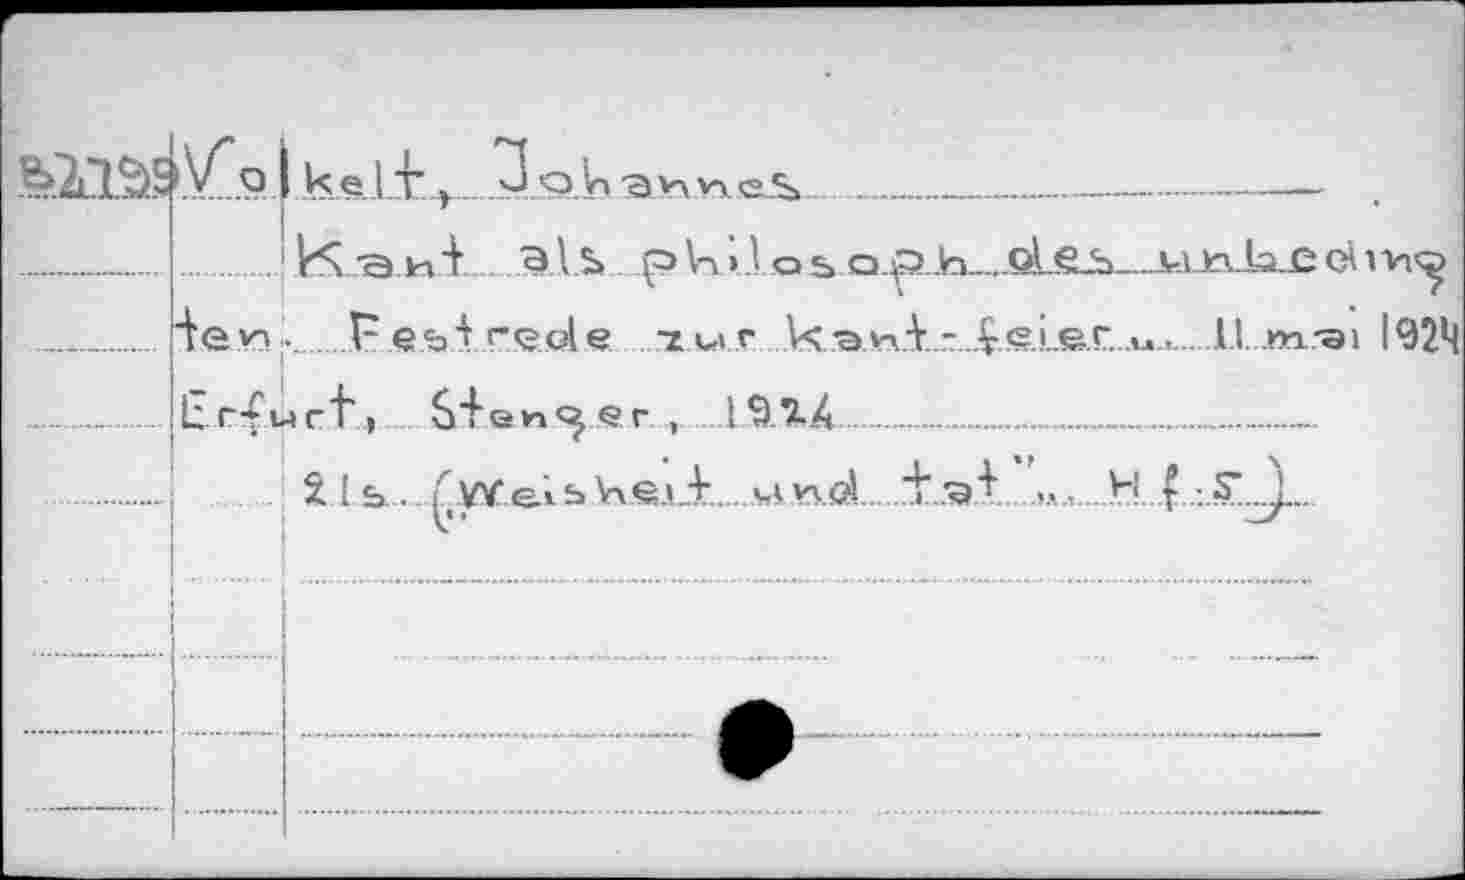 Volkelt, Johannes
Kant als philosoph des unbeding
ten. Festrede zur Kant-feier u. 11 mai 1924
Erfurt, Stenger, 1924
21s. („Weisheit und tat"... Hf.5)